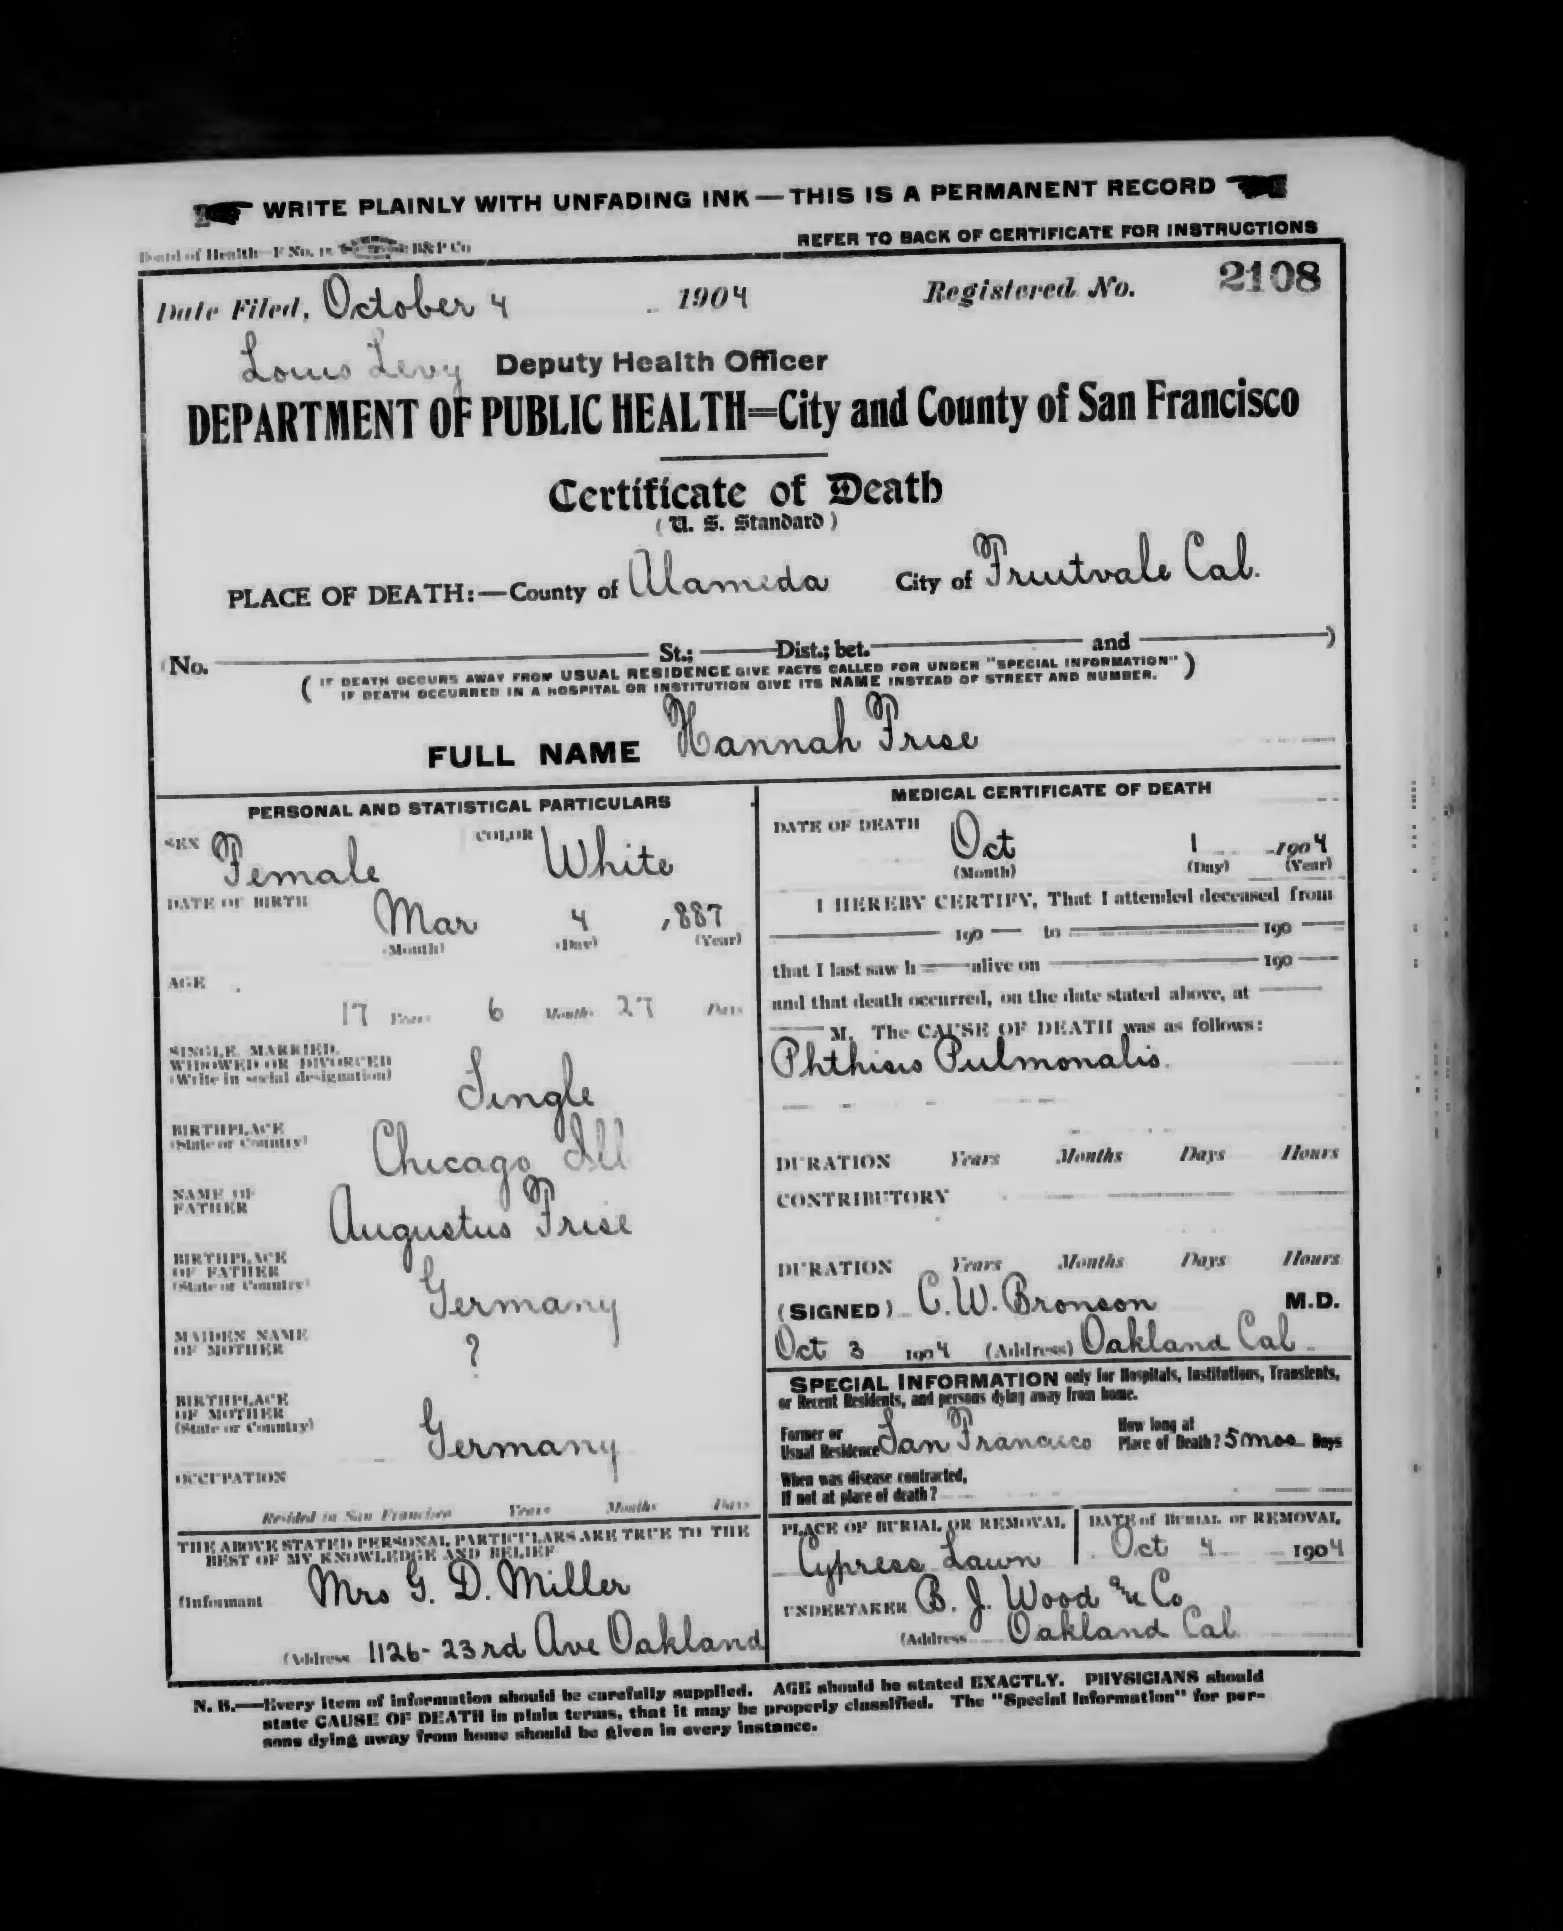 WRITE PLAINLY WITH UNFADING INK — THIS IS A PERMANENT RECORD
Board of Health—F No. B&P Co
REFER TO BACK OF CERTIFICATE FOR INSTRUCTIONS
Date Filed, October 4 1904 Registered No. 2108
Louis Levy Deputy Health Officer
DEPARTMENT OF PUBLIC HEALTH=City and County of San Francisco
Certificate of Death
(U. S. Standard)
PLACE OF DEATH:—County of Alameda City of Fruitvale Cal.
(No. St.; Dist.; bet. and )
( IF DEATH OCCURS AWAY FROM USUAL RESIDENCE GIVE FACTS CALLED FOR UNDER "SPECIAL INFORMATION" )
IF DEATH OCCURRED IN A HOSPITAL OR INSTITUTION GIVE ITS NAME INSTEAD OF STREET AND NUMBER.
FULL NAME Hannah Frise
PERSONAL AND STATISTICAL PARTICULARS
SEX Female COLOR White
DATE OF BIRTH Mar 4 1887
(Month) (Day) (Year)
AGE
17 Years 6 Months 27 Days
SINGLE, MARRIED,
WIDOWED OR DIVORCED
(Write in social designation) Single
BIRTHPLACE
(State or Country) Chicago Ill
NAME OF
FATHER Augustus Frise
BIRTHPLACE
OF FATHER
(State or Country) Germany
MAIDEN NAME
OF MOTHER ?
BIRTHPLACE
OF MOTHER
(State or Country) Germany
OCCUPATION
Resided in San Francisco Years Months Days
THE ABOVE STATED PERSONAL PARTICULARS ARE TRUE TO THE
BEST OF MY KNOWLEDGE AND BELIEF
(Informant Mrs G. D. Miller
(Address 1126- 23rd Ave Oakland
MEDICAL CERTIFICATE OF DEATH
DATE OF DEATH Oct 1 1904
(Month) (Day) (Year)
I HEREBY CERTIFY, That I attended deceased from
190 to 190
that I last saw h alive on 190
and that death occurred, on the date stated above, at
M. The CAUSE OF DEATH was as follows:
Phthisis Pulmonalis.
DURATION Years Months Days Hours
CONTRIBUTORY
DURATION Years Months Days Hours
(SIGNED) C. W. Bronson M.D.
Oct 3 1904 (Address) Oakland Cal
SPECIAL INFORMATION only for Hospitals, Institutions, Transients,
or Recent Residents, and persons dying away from home.
Former or
Usual Residence San Francisco
How long at
Place of Death? 5 mos Days
When was disease contracted,
If not at place of death?
PLACE OF BURIAL OR REMOVAL
Cypress Lawn
DATE of BURIAL or REMOVAL
Oct 4 1904
UNDERTAKER B. J. Wood & Co
(Address Oakland Cal
N. B.—Every item of information should be carefully supplied. AGE should be stated EXACTLY. PHYSICIANS should
state CAUSE OF DEATH in plain terms, that it may be properly classified. The "Special Information" for per-
sons dying away from home should be given in every instance.